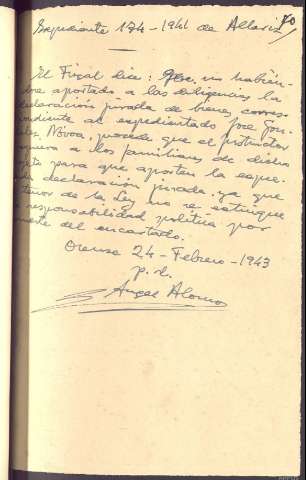 Expediente 174-1941 de Allariz
El Fiscal dice: Que, no habién-
dose aportado a las diligencias la
declaración jurada de bienes corres-
pondiente al expedientado Jose Gon-
zalez Nóvoa, procede que el instructor
requiera a los familiares de dicho
para que aporten la expre-
sada declaración jurada, ya que
tenor de la Ley no se extingue
responsabilidad política por
muerte del encartado.
Orense 24-Febrero-1943
p.d.
Angel Alonso